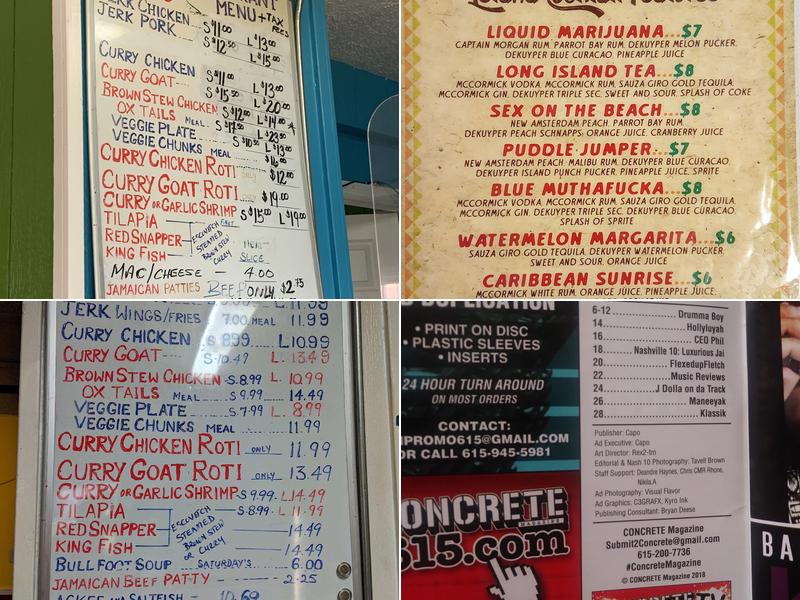 MENU +TAX
FEES
JERK CHICKEN
JERK PORK S $11.00 L $13.00
S $12.50 L $15.00
CURRY CHICKEN S $11.00 L $13.00
CURRY GOAT S $15.50 L $20.00
BROWN STEW CHICKEN S $12.00 L $14.00
OX TAILS MEAL S $17.50 L $23.50
VEGGIE PLATE S $10.50 L $13.00
VEGGIE CHUNKS MEAL $16.00
CURRY CHICKEN ROTI $12.00
CURRY GOAT ROTI $14.00
CURRY OR GARLIC SHRIMP S $15.00 L $19.00
TILAPIA
RED SNAPPER
KING FISH
ESCOVITCH
STEAMED
BROWN STEW
CURRY
SLICE
MAC/CHEESE — 4.00
JAMAICAN PATTIES BEEF ONLY $2.75
LIQUID MARIJUANA...$7
CAPTAIN MORGAN RUM, PARROT BAY RUM, DEKUYPER MELON PUCKER,
DEKUYPER BLUE CURACAO, PINEAPPLE JUICE
LONG ISLAND TEA...$8
MCCORMICK VODKA, MCCORMICK RUM, SAUZA GIRO GOLD TEQUILA,
MCCORMICK GIN, DEKUYPER TRIPLE SEC, SWEET AND SOUR, SPLASH OF COKE
SEX ON THE BEACH...$8
NEW AMSTERDAM PEACH, PARROT BAY RUM,
DEKUYPER PEACH SCHNAPPS, ORANGE JUICE, CRANBERRY JUICE
PUDDLE JUMPER...$7
NEW AMSTERDAM PEACH, MALIBU RUM, DEKUYPER BLUE CURACAO,
DEKUYPER ISLAND PUNCH PUCKER, PINEAPPLE JUICE, SPRITE
BLUE MUTHAFUCKA...$8
MCCORMICK VODKA, MCCORMICK RUM, SAUZA GIRO GOLD TEQUILA,
MCCORMICK GIN, DEKUYPER TRIPLE SEC, DEKUYPER BLUE CURACAO,
SPLASH OF SPRITE
WATERMELON MARGARITA...$6
SAUZA GIRO GOLD TEQUILA, DEKUYPER WATERMELON PUCKER,
SWEET AND SOUR, ORANGE JUICE
CARIBBEAN SUNRISE...$6
MCCORMICK WHITE RUM, ORANGE JUICE, PINEAPPLE JUICE,
L 11.99
JERK WINGS/FRIES 7.00 MEAL 11.99
CURRY CHICKEN S 8.99 L 10.99
CURRY GOAT S-10.49 L 13.49
BROWN STEW CHICKEN S-8.99 L 10.99
OX TAILS MEAL S 9.99 L 14.49
VEGGIE PLATE S 7.99 L 8.99
VEGGIE CHUNKS MEAL 11.99
CURRY CHICKEN ROTI ONLY 11.99
CURRY GOAT ROTI ONLY 13.49
CURRY OR GARLIC SHRIMP S 9.99 L 14.49
TILAPIA S-8.99 L 11.99
RED SNAPPER 14.49
KING FISH 14.49
ESCOVITCH
STEAMED
BROWN STEW
OR CURRY
BULLFOOT SOUP SATURDAY'S 6.00
JAMAICAN BEEF PATTY 2.25
ACKEE SALTFISH 10.69
DUPLICATION
• PRINT ON DISC
• PLASTIC SLEEVES
• INSERTS
24 HOUR TURN AROUND
ON MOST ORDERS
CONTACT:
PROMO615@GMAIL.COM
OR CALL 615-945-5981
ONCRETE
MAGAZINE
615.com
6-12 Drumma Boy
14 Hollyluyah
16 CEO Phil
18 Nashville 10: Luxurious Jai
20 FlexedupFletch
22 Music Reviews
24 J Dolla on da Track
26 Maneeyak
28 Klassik
Publisher: Capo
Ad Executive: Capo
Art Director: Rex2-tm
Editorial & Nash 10 Photography: Tavell Brown
Staff Support: Deadre Haynes, Chris CMR Rhone,
Nikila.A
Ad Photography: Visual Flavor
Ad Graphics: C3GRAFX, Kyro Ink
Publishing Consultant: Bryan Deese
CONCRETE Magazine
Submit2Concrete@gmail.com
615-200-7736
#ConcreteMagazine
© CONCRETE Magazine 2018
BA